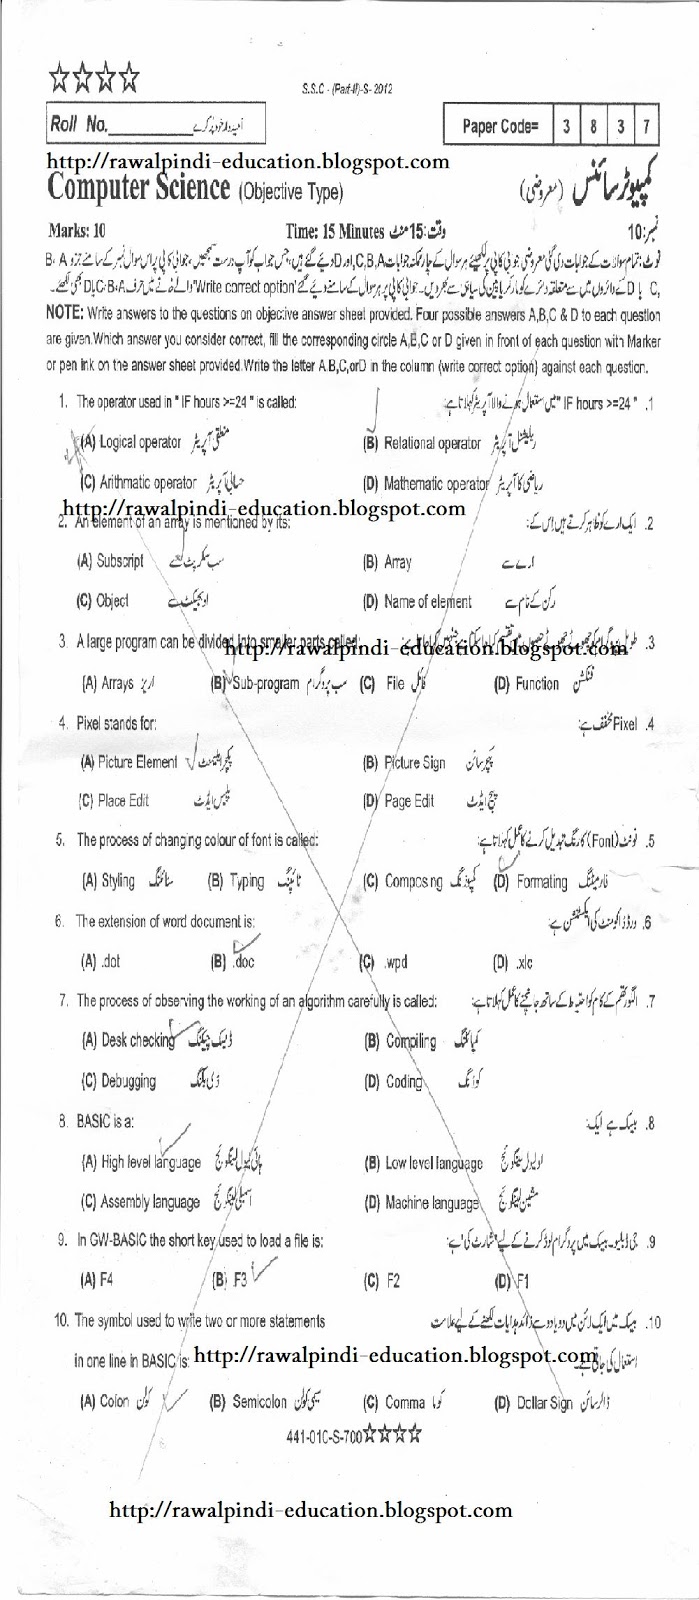 S.S.C - (Part-II)-S- 2012
Roll No.__________ امیدوار خود پُر کرے
Paper Code= 3 8 3 7
http://rawalpindi-education.blogspot.com
Computer Science (Objective Type) کمپیوٹر سائنس (معروضی)
Marks: 10 Time: 15 Minutes وقت: 15 منٹ نمبر: 10
NOTE: Write answers to the questions on objective answer sheet provided. Four possible answers A,B,C & D to each question
are given.Which answer you consider correct, fill the corresponding circle A,B,C or D given in front of each question with Marker
or pen ink on the answer sheet provided.Write the letter A.B,C,orD in the column (write correct option) against each question.
1. The operator used in " IF hours >=24 " is called: " IF hours >=24 " میں استعمال ہونے والا آپریٹر کہلاتا ہے: .1
(A) Logical operator منطقی آپریٹر (B) Relational operator ریلیشنل آپریٹر
(C) Arithmatic operator حسابی آپریٹر (D) Mathematic operator ریاضی کا آپریٹر
http://rawalpindi-education.blogspot.com
2. An element of an array is mentioned by its: ایک ارے کو ظاہر کرتے ہیں اس کے: .2
(A) Subscript سب سکرپٹ سے (B) Array ارے سے
(C) Object اوبجیکٹ سے (D) Name of element رکن کے نام سے
3. A large program can be divided into smaller parts called: .3
http://rawalpindi-education.blogspot.com
(A) Arrays اریز (B) Sub-program سب پروگرام (C) File فائل (D) Function فنکشن
4. Pixel stands for: Pixel مخفف ہے: .4
(A) Picture Element پکچر ایلیمنٹ (B) Picture Sign پکچر سائن
(C) Place Edit پلیس ایڈٹ (D) Page Edit پیج ایڈٹ
5. The process of changing colour of font is called: فونٹ (Font) کا رنگ تبدیل کرنے کا عمل کہلاتا ہے: .5
(A) Styling سٹائلنگ (B) Typing ٹائپنگ (C) Composing کمپوزنگ (D) Formating فارمیٹنگ
6. The extension of word document is: ورڈ ڈاکومنٹ کی ایکسٹینشن ہے: .6
(A) .dot (B) .doc (C) .wpd (D) .xlc
7. The process of observing the working of an algorithm carefully is called: الگورتھم کے کام کو احتیاط کے ساتھ جانچنے کا عمل کہلاتا ہے: .7
(A) Desk checking ڈیسک چیکنگ (B) Compiling کمپائلنگ
(C) Debugging ڈی بگنگ (D) Coding کوڈنگ
8. BASIC is a: بیسک ہے ایک: .8
(A) High level language ہائی لیول لینگوئج (B) Low level language لو لیول لینگوئج
(C) Assembly language اسمبلی لینگوئج (D) Machine language مشین لینگوئج
9. In GW-BASIC the short key used to load a file is: .9
(A) F4 (B) F3 (C) F2 (D) F1
10. The symbol used to write two or more statements بیسک میں ایک لائن میں دو یا دو سے زائد ہدایات لکھنے کے لیے علامت .10
in one line in BASIC is: استعمال کی جاتی ہے:
http://rawalpindi-education.blogspot.com
(A) Colon کولن (B) Semicolon سیمی کولن (C) Comma کوما (D) Dollar Sign ڈالر سائن
441-010-S-700
http://rawalpindi-education.blogspot.com